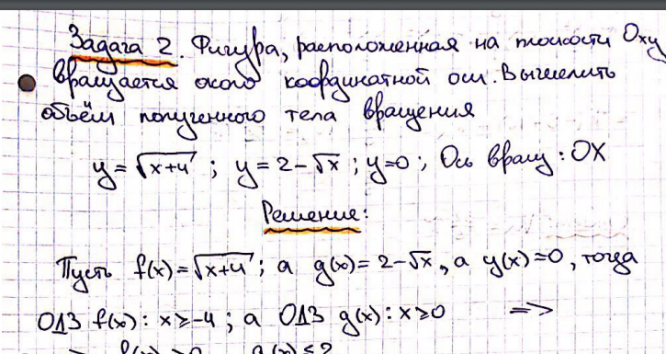 Задача 2. Фигура, расположенная на плоскости Oxy
вращается около координатной оси. Вычислить
объём полученного тела вращения
y=√x+4; y=2-√x; y=0; Ось вращ: OX
Решение:
Пусть f(x)=√x+4; а g(x)=2-√x, а y(x)=0, тогда
ОДЗ f(x): x≥-4; а ОДЗ g(x): x≥0 =>
=> f(x)≥0 g(x)≤2